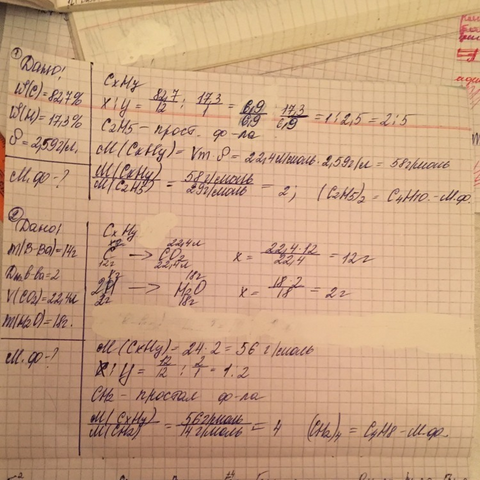 ① Дано:
CxHy
W(C)=82,7%
W(H)=17,3%
ρ=2,59г/л.
x:y = 82,7/12 : 17,3/1 = 6,9/6,9 : 17,3/6,9 = 1:2,5 = 2:5
C2H5 – прост. ф-ла
M(CxHy) = Vm·ρ = 22,4л/моль·2,59г/л = 58г/моль
М.ф-?
M(CxHy)/M(C2H5) = 58г/моль/29г/моль = 2; (C2H5)2 = C4H10 – М.ф.
② Дано:
CxHy
m(В-Ва)=14г
в-ва=2
V(CO2)=22,4л
m(H2O)=18г.
22,4л
→ CO2
12г 22,4л
x = 22,4·12/22,4 = 12г
18г
2H → H2O
2г 18г
x = 18·2/18 = 2г
М.ф-?
M(CxHy) = 2 = 56г/моль
x:y = 12/12 : 2/1 = 1:2
CH2 – простая ф-ла
M(CxHy)/M(CH2) = 56г/моль/14г/моль = 4 (CH2)4 = C4H8 – М.ф.